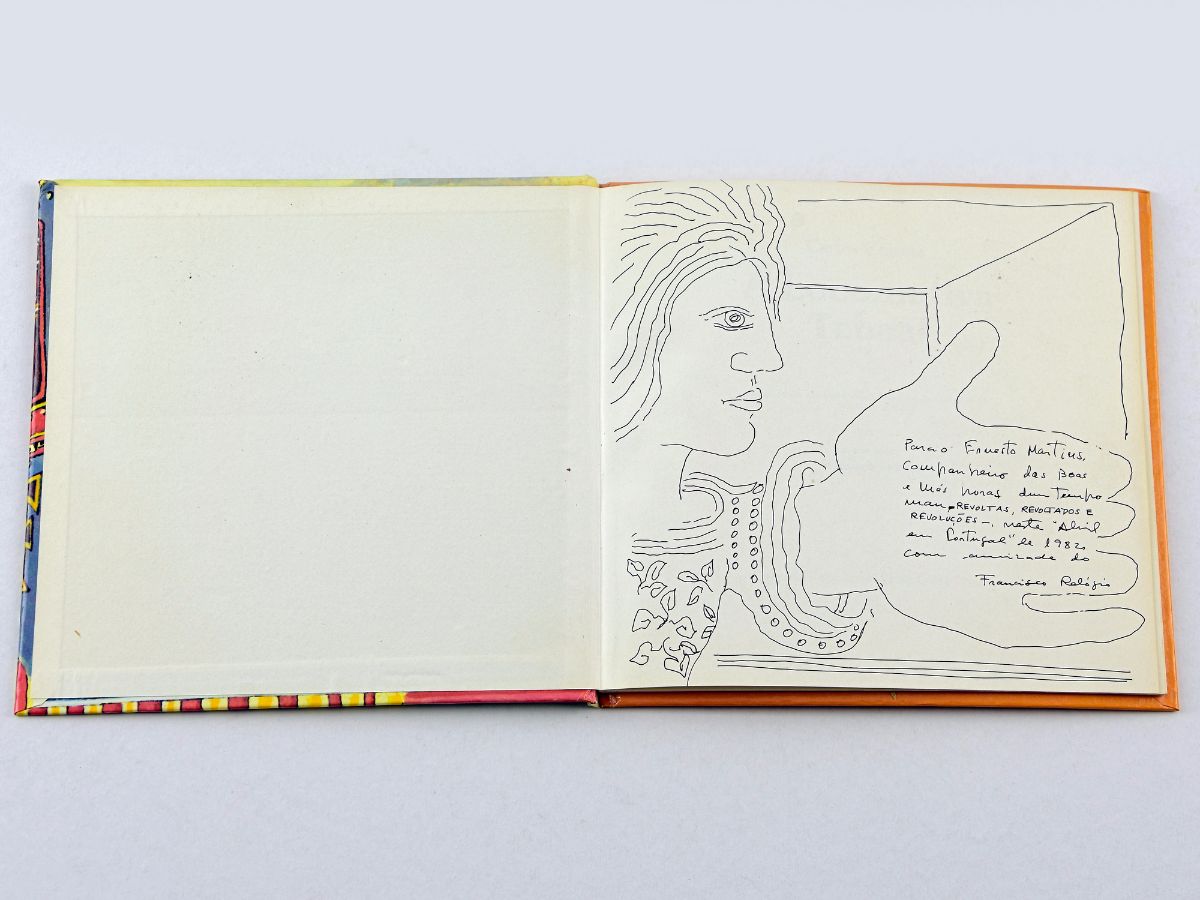 Para o Ernesto Martins,
Companheiro das Boas
e Más horas dum Tempo
REVOLTAS, REVOLTADOS E
REVOLUÇÕES –, neste "Abril
em Portugal" de 1982
com amizade do
Francisco Relógio